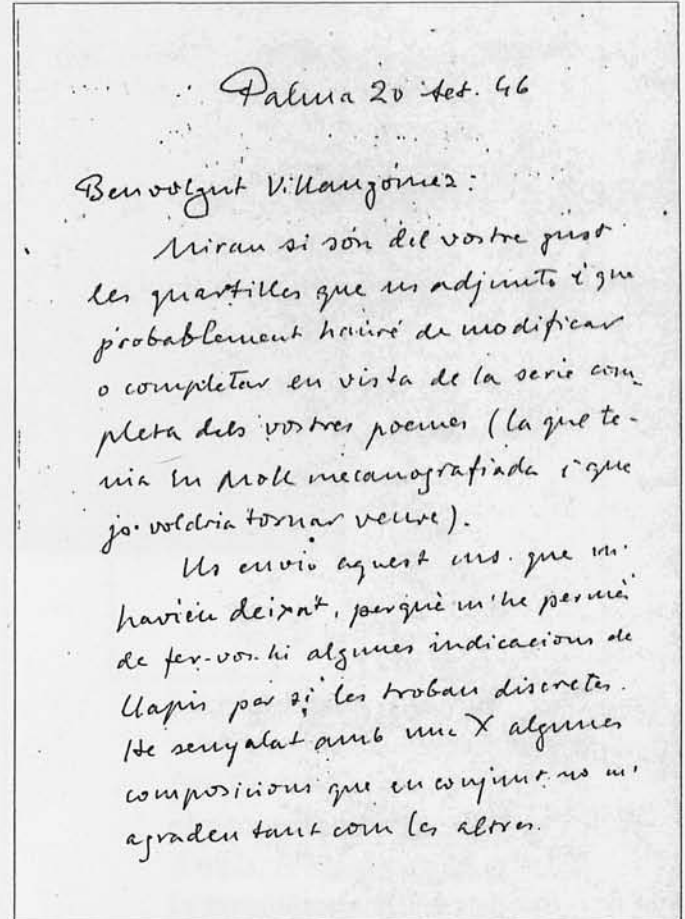 Palma 20 set. 46
Benvolgut Villangómez:
Mirau si són del vostre gust
les quartilles que us adjunto i que
probablement hauré de modificar
o completar en vista de la serie com-
pleta dels vostres poemes (la que te-
nia En Moll mecanografiada i que
jo voldria tornar veure).
Us envio aquest ms. que m'
havíeu deixat, perquè m'he permès
de fer-vos-hi algunes indicacions de
llapis per si les trobau discretes.
He senyalat amb una X algunes
composicions que en conjunt no m'
agraden tant com les altres.